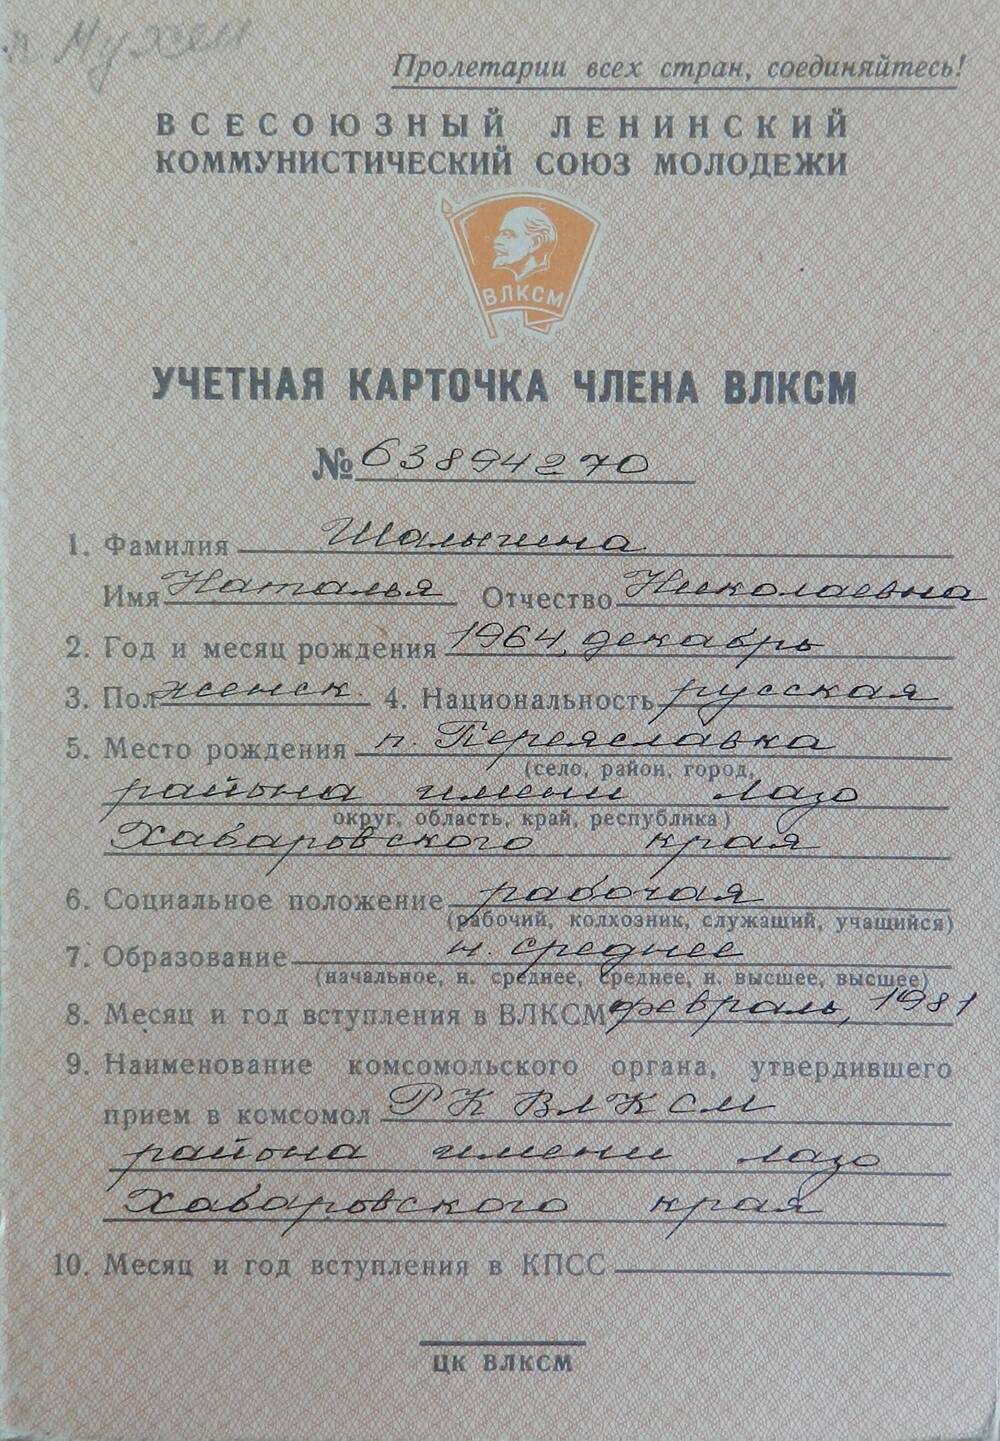 п. Мухен
Пролетарии всех стран, соединяйтесь!
ВСЕСОЮЗНЫЙ ЛЕНИНСКИЙ
КОММУНИСТИЧЕСКИЙ СОЮЗ МОЛОДЕЖИ
ВЛКСМ
УЧЕТНАЯ КАРТОЧКА ЧЛЕНА ВЛКСМ
№ 63894270
1. Фамилия Шалыгина
Имя Наталья Отчество Николаевна
2. Год и месяц рождения 1964, декабрь
3. Пол женск. 4. Национальность русская
5. Место рождения п. Переяславка
(село, район, город,
района имени Лазо
округ, область, край, республика)
Хабаровского края
6. Социальное положение рабочая
(рабочий, колхозник, служащий, учащийся)
7. Образование н. среднее
(начальное, н. среднее, среднее, н. высшее, высшее)
8. Месяц и год вступления в ВЛКСМ февраль, 1981
9. Наименование комсомольского органа, утвердившего
прием в комсомол РК ВЛКСМ
района имени Лазо
Хабаровского края
10. Месяц и год вступления в КПСС
ЦК ВЛКСМ